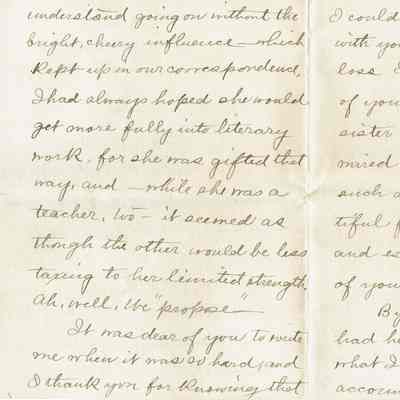 understand going on without the
bright, cheery influence — which
kept up in our correspondence,
I had always hoped she would
get more fully into literary
work, for she was gifted that
way, and — while she was a
teacher, too — it seemed as
though the other would be less
taxing to her limited strength.
Ah, well, We "propose" —
It was dear of you to write
me when it was so hard, and
I thank you for knowing that
I could
with you
loss
of you
sister
mired
such a
tiful
and es
of you
By
had h
what I
accoun